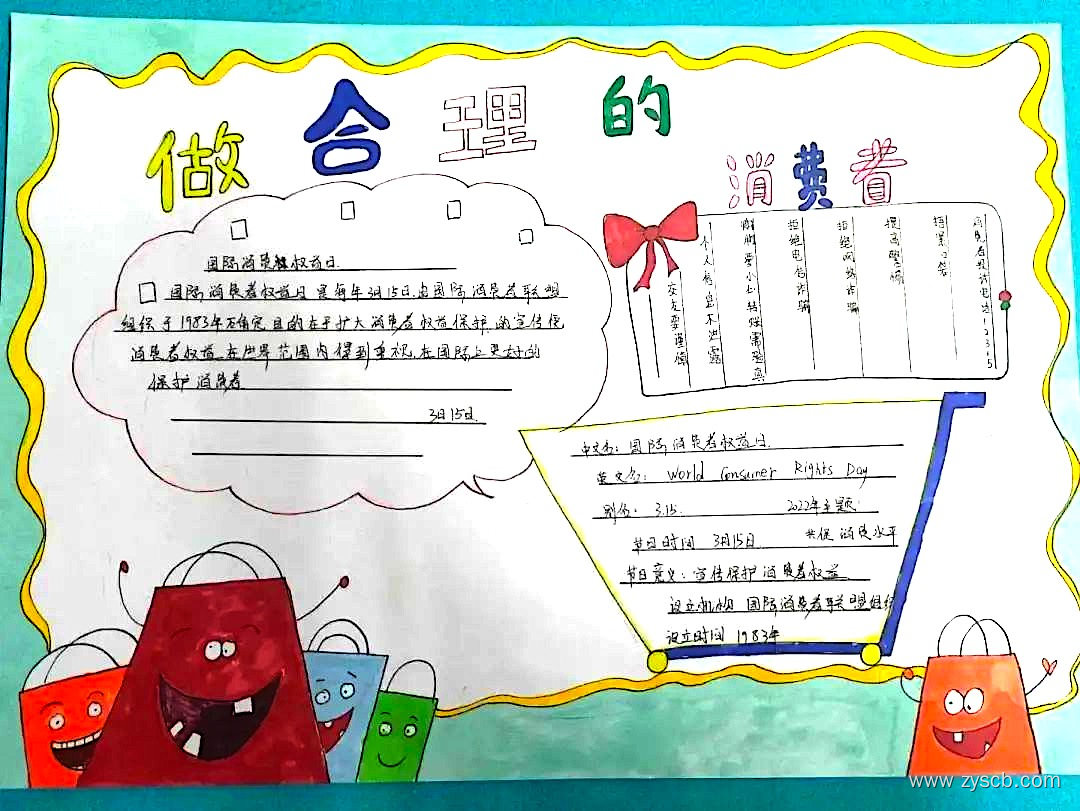 做合理的
消费者
国际消费者权益日
国际消费者权益日是每年3月15日,由国际消费者联盟
组织于1983年确定目的在于扩大消费者权益保护的宣传使
消费者权益在世界范围内得到重视,在国际上更好的
保护消费者
3月15日
消费者投诉电话12315
提高警惕
拒绝网络诈骗
拒绝电信诈骗
购物要小心转账需验真
个人信息不泄露
交友要谨慎
中文名:国际消费者权益日
英文名:World Consumer Rights Day
别名:3.15. 2022年主题:
节日时间 3月15日 共促消费水平
节日意义:宣传保护消费者权益
设立机构 国际消费者联盟组织
设立时间 1983年
www.zyscb.com